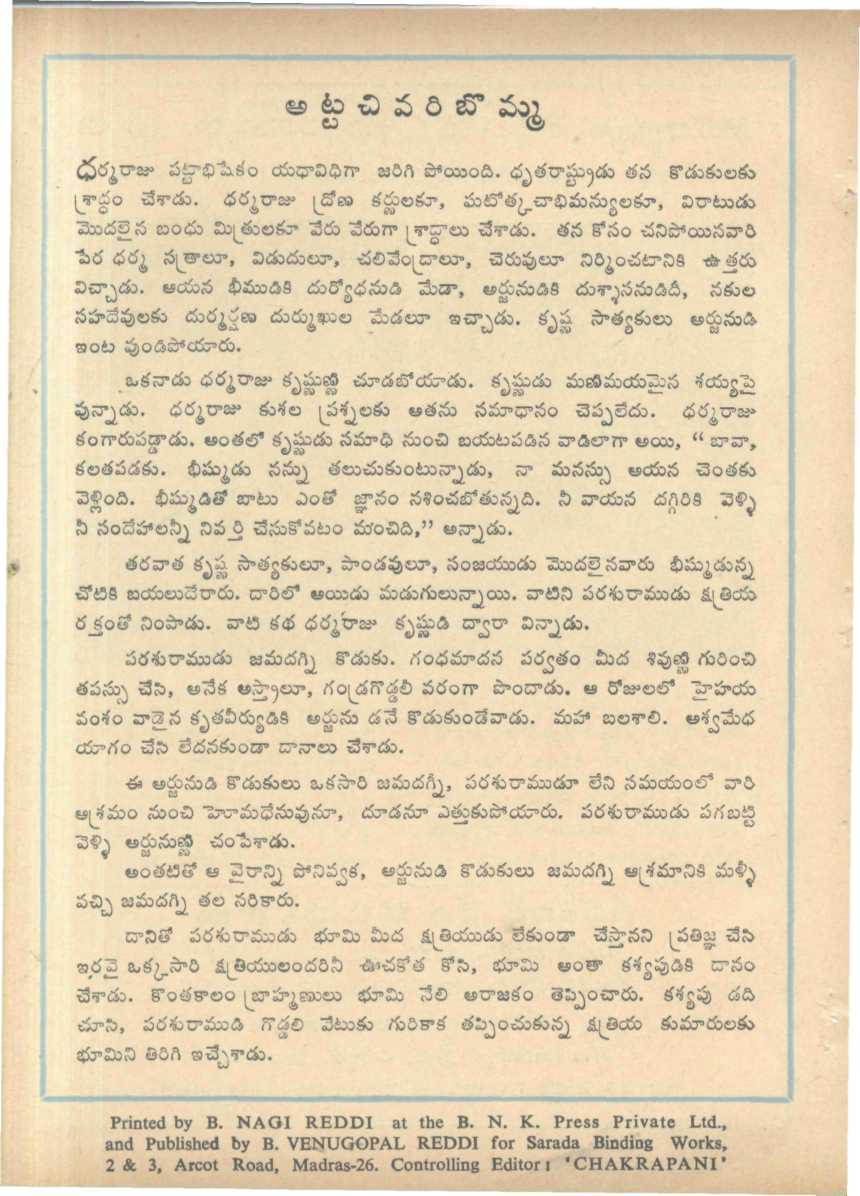 అట్టచివరిబొమ్మ
ధర్మరాజు పట్టాభిషేకం యథావిధిగా జరిగి పోయింది. ధృతరాష్ట్రుడు తన కొడుకులకు
శ్రాద్ధం చేశాడు. ధర్మరాజు ద్రోణ కర్ణులకూ, ఘటోత్కచాభిమన్యులకూ, విరాటుడు
మొదలైన బంధు మిత్రులకూ వేరు వేరుగా శ్రాద్ధాలు చేశాడు. తన కోసం చనిపోయినవారి
పేర ధర్మ సత్రాలూ, విడుదులూ, చలివేంద్రాలూ, చెరువులూ నిర్మించటానికి ఉత్తరు
విచ్చాడు. ఆయన భీముడికి దుర్యోధనుడి మేడా, అర్జునుడికి దుశ్శాసనుడిదీ, నకుల
సహదేవులకు దుర్మర్షణ దుర్ముఖుల మేడలూ ఇచ్చాడు. కృష్ణ సాత్యకులు అర్జునుడి
ఇంట వుండిపోయారు.
ఒకనాడు ధర్మరాజు కృష్ణుణ్ణి చూడబోయాడు. కృష్ణుడు మణిమయమైన శయ్యపై
వున్నాడు. ధర్మరాజు కుశల ప్రశ్నలకు అతను సమాధానం చెప్పలేదు. ధర్మరాజు
కంగారుపడ్డాడు. అంతలో కృష్ణుడు సమాధి నుంచి బయటపడిన వాడిలాగా అయి, “ బావా,
కలతపడకు. భీష్ముడు నన్ను తలుచుకుంటున్నాడు, నా మనస్సు ఆయన చెంతకు
వెళ్లింది. భీష్ముడితో బాటు ఎంతో జ్ఞానం నశించబోతున్నది. నీ వాయన దగ్గిరికి వెళ్ళి
నీ సందేహాలన్నీ నివర్తి చేసుకోవటం మంచిది,” అన్నాడు.
తరవాత కృష్ణ సాత్యకులూ, పాండవులూ, సంజయుడు మొదలైనవారు భీష్ముడున్న
చోటికి బయలుదేరారు. దారిలో అయిడు మడుగులున్నాయి. వాటిని పరశురాముడు క్షత్రియ
రక్తంతో నింపాడు. వాటి కథ ధర్మరాజు కృష్ణుడి ద్వారా విన్నాడు.
పరశురాముడు జమదగ్ని కొడుకు. గంధమాదన పర్వతం మీద శివుణ్ణి గురించి
తపస్సు చేసి, అనేక అస్త్రాలూ, గండ్రగొడ్డలీ వరంగా పొందాడు. ఆ రోజులలో హైహయ
వంశం వాడైన కృతవీర్యుడికి అర్జును డనే కొడుకుండేవాడు. మహా బలశాలి. అశ్వమేధ
యాగం చేసి లేదనకుండా దానాలు చేశాడు.
ఈ అర్జునుడి కొడుకులు ఒకసారి జమదగ్నీ, పరశురాముడూ లేని సమయంలో వారి
ఆశ్రమం నుంచి హెూమధేనువునూ, దూడనూ ఎత్తుకుపోయారు. పరశురాముడు పగబట్టి
వెళ్ళి అర్జునుణ్ణి చంపేశాడు.
అంతటితో ఆ వైరాన్ని పోనివ్వక, అర్జునుడి కొడుకులు జమదగ్ని ఆశ్రమానికి మళ్ళీ
వచ్చి జమదగ్ని తల నరికారు.
దానితో పరశురాముడు భూమి మీద క్షత్రియుడు లేకుండా చేస్తానని ప్రతిజ్ఞ చేసి
ఇరవై ఒక్కసారి క్షత్రియులందరినీ ఊచకోత కోసి, భూమి అంతా కశ్యపుడికి దానం
చేశాడు. కొంతకాలం బ్రాహ్మణులు భూమి నేలి అరాజకం తెప్పించారు. కశ్యపు డది
చూసి, పరశురాముడి గొడ్డలి వేటుకు గురికాక తప్పించుకున్న క్షత్రియ కుమారులకు
భూమిని తిరిగి ఇచ్చేశాడు.
Printed by B. NAGI REDDI at the B. N. K. Press Private Ltd.,
and Published by B. VENUGOPAL REDDI for Sarada Binding Works,
2 & 3, Arcot Road, Madras-26. Controlling Editor : 'CHAKRAPANI'